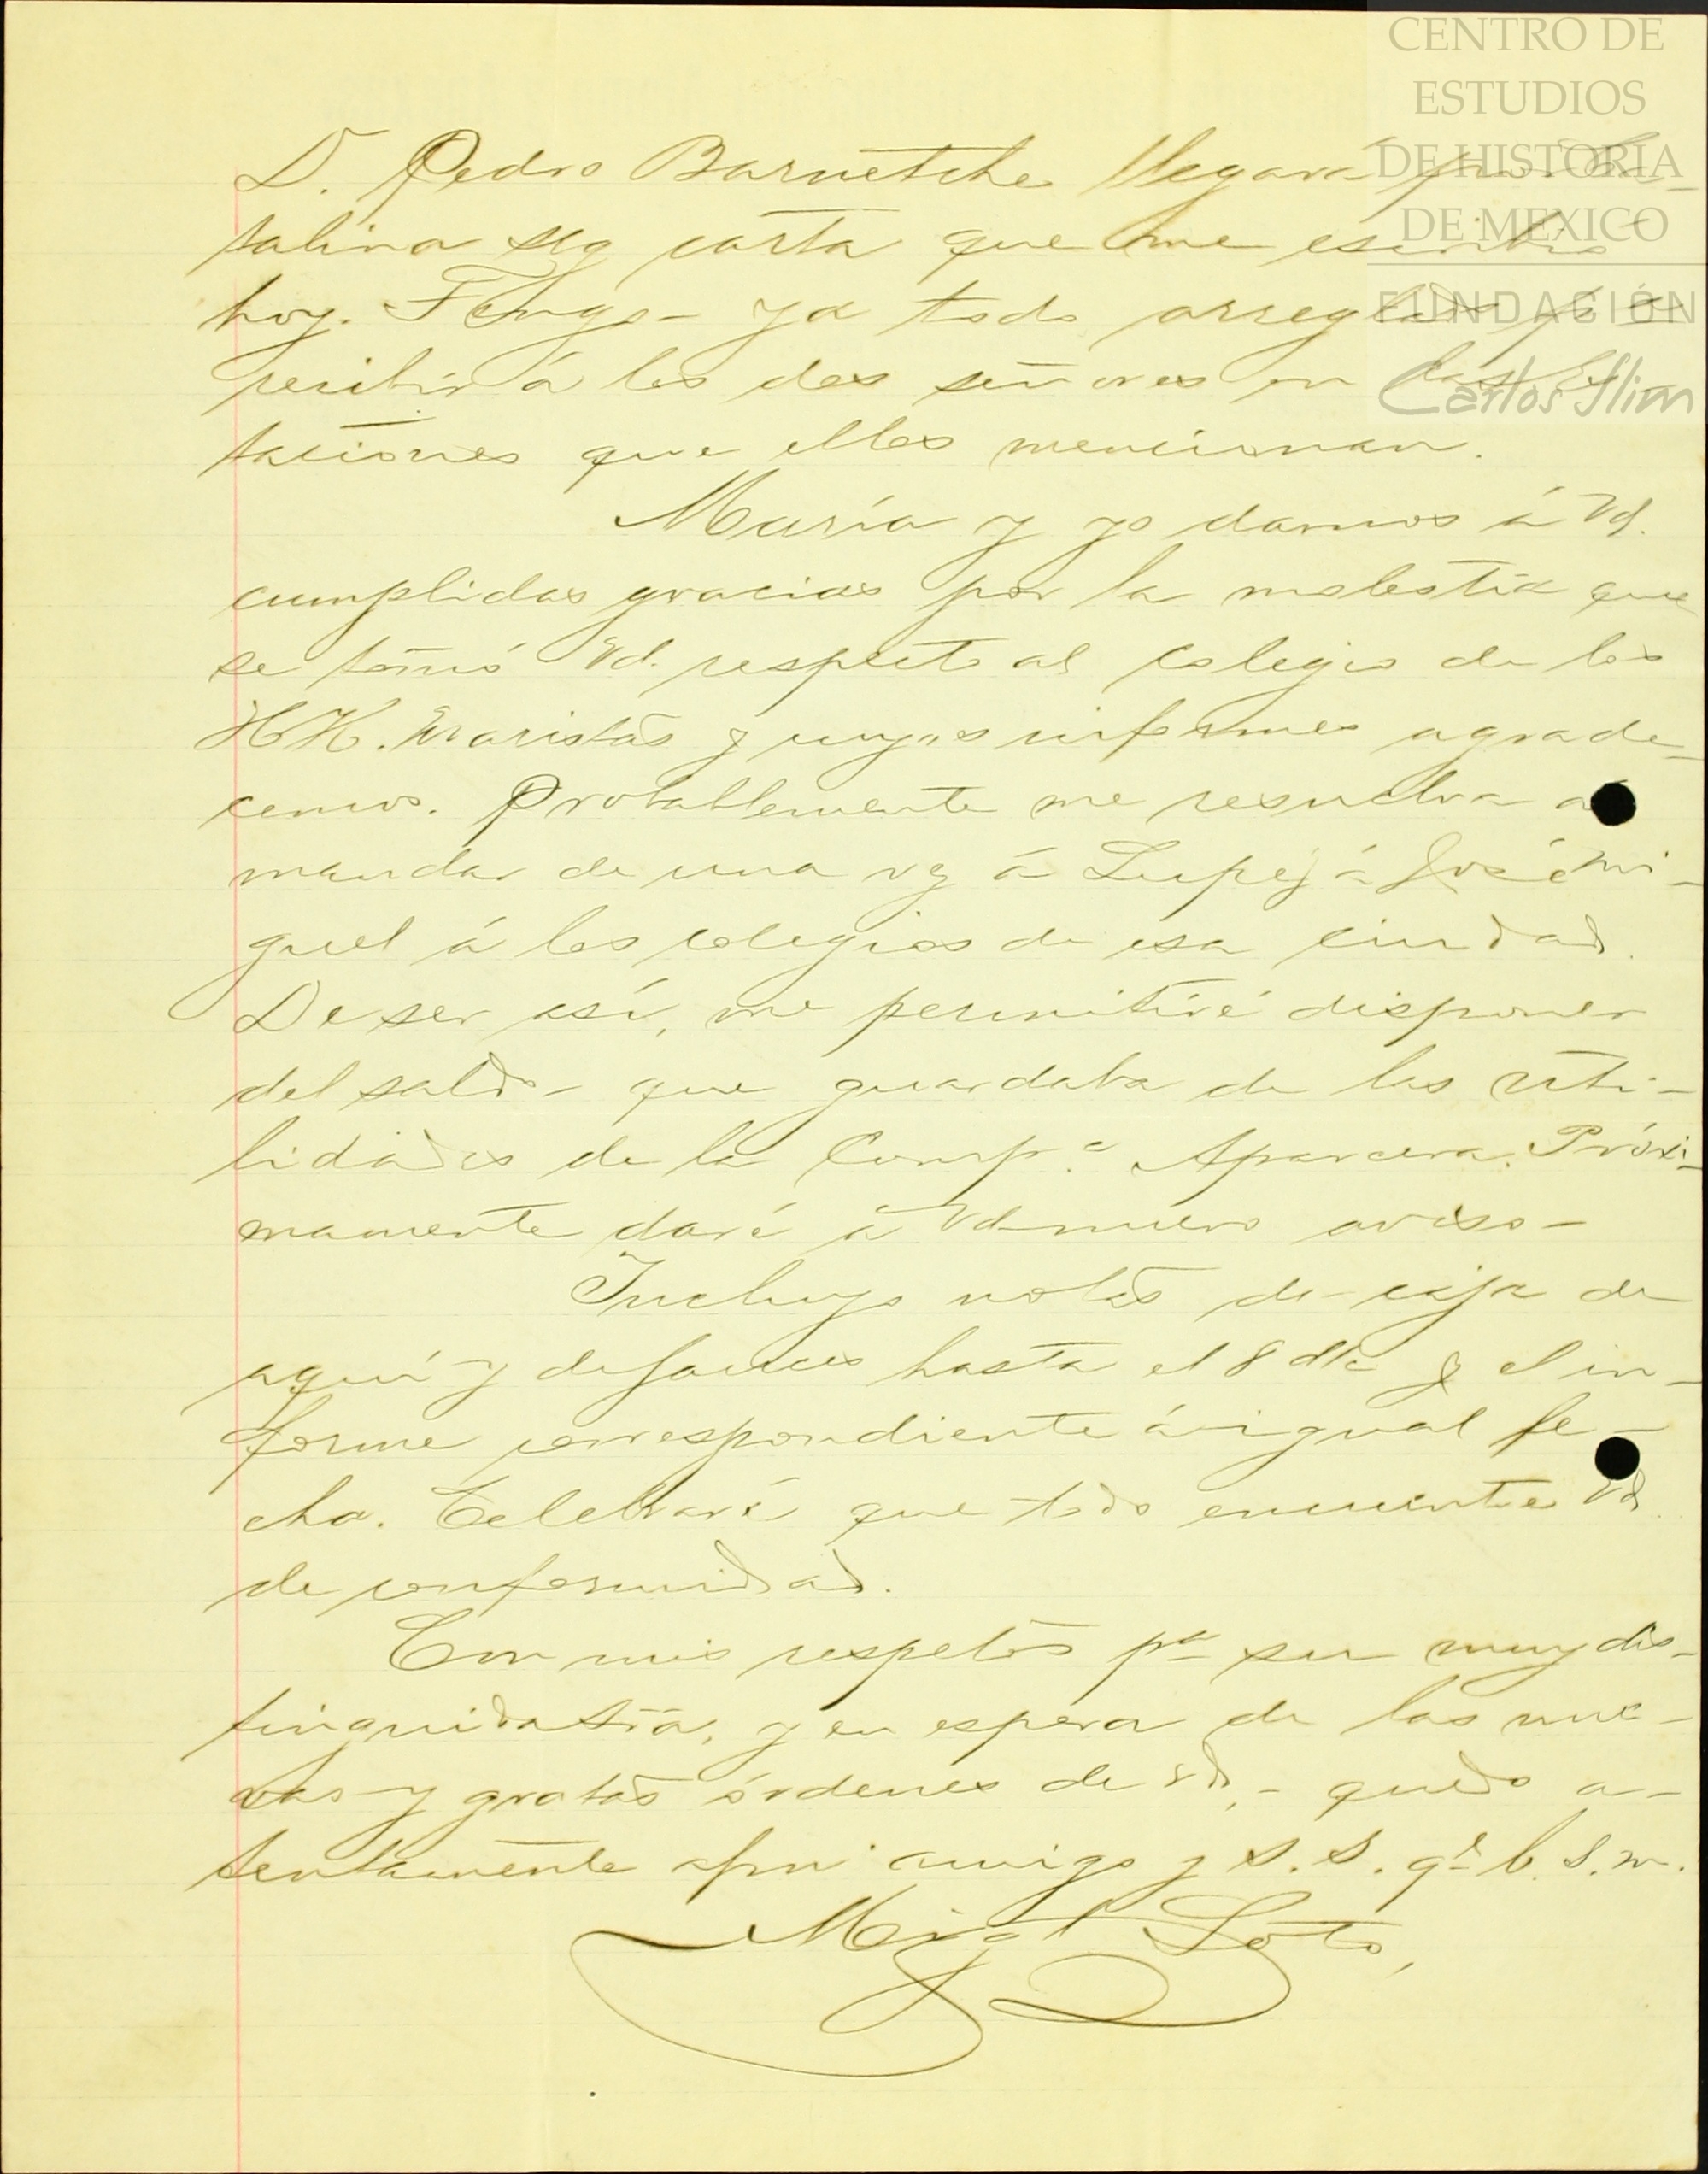 CENTRO DE
ESTUDIOS
DE HISTORIA
DE MEXICO
FUNDACIÓN
Carlos Slim
D. Pedro Barnetche llegará
talina seg carta que me escribió
hoy. Tengo ya todo arreglado
recibir á los dos señores en las Es-
taciones que ellos mencionan.
María y yo damos á Vd.
cumplidas gracias por la molestia que
se tomó Vd. respecto al colegio de los
HH. Maristas y cuyos informes agrade-
cemos. Probablemente me resuelva a
mandar de una vez á Lupe y á José Mi-
guel á los colegios de esa ciudad.
De ser así, me permitiré disponer
del saldo que guardaba de las uti-
lidades de la Comp.ª Aparcera. Próxi-
mamente daré á Vd nuevo aviso-
Incluyo notas de caja de
aquí y de fauces hasta el 8 y el in-
forme correspondiente á igual fe-
cha. Celebraré que todo encuentre Vd.
de conformidad.
Con mis respetos pª su muy dis-
tinguida Sra, y en espera de las nue-
vas y gratas órdenes de Vd, - quedo a-
tentamente afmo amigo y S. S. qe b. s. m.
Migl Soto,